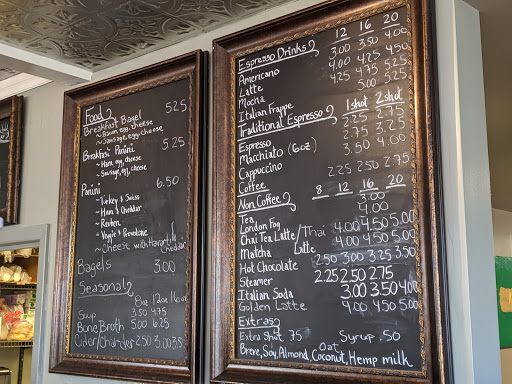 Food
Breakfast Bagel 525
~ Bacon, egg, cheese
~ Sausage, egg, cheese
Breakfast Panini 5.25
~ Ham, egg, cheese
~ Sausage, egg, cheese
Panini 6.50
~ Turkey & Swiss
~ Ham & Cheddar
~ Reuben
~ Veggie & Provolone
~ Cheese with Cheddar
Bagels 300
Seasonal
8oz 12oz 16oz
Soup 3.50 4.75
Bone Broth 5.00 6.25
Cider/Chaider 2.50 3.00 3.5
Espresso Drinks 12 16 20
Americano 3.00 3.50 4.00
Latte 4.00 4.25 4.50
Mocha 4.25 4.75 5.25
Italian Frappe 5.00 5.25
Traditional Espresso 1 shot 2 shot
Espresso 2.25 2.75
Macchiato (6oz) 2.75 3.25
Cappuccino 3.50 4.00
Coffee 2.25 2.50 2.75
Non Coffee 8 12 16 20
Tea 3.00
London Fog 4.00
Chai Tea Latte/Thai 4.00 4.50 5.00
Matcha Latte 4.00 4.50 5.00
Hot Chocolate 2.50 3.00 3.25 3.50
Steamer 2.25 2.50 2.75
Italian Soda 3.00 3.50 4.00
Golden Latte 4.00 4.50 5.00
Extras
Extra Shot .75 Syrup .50
Breve, Soy, Almond, Oat, Coconut, Hemp milk